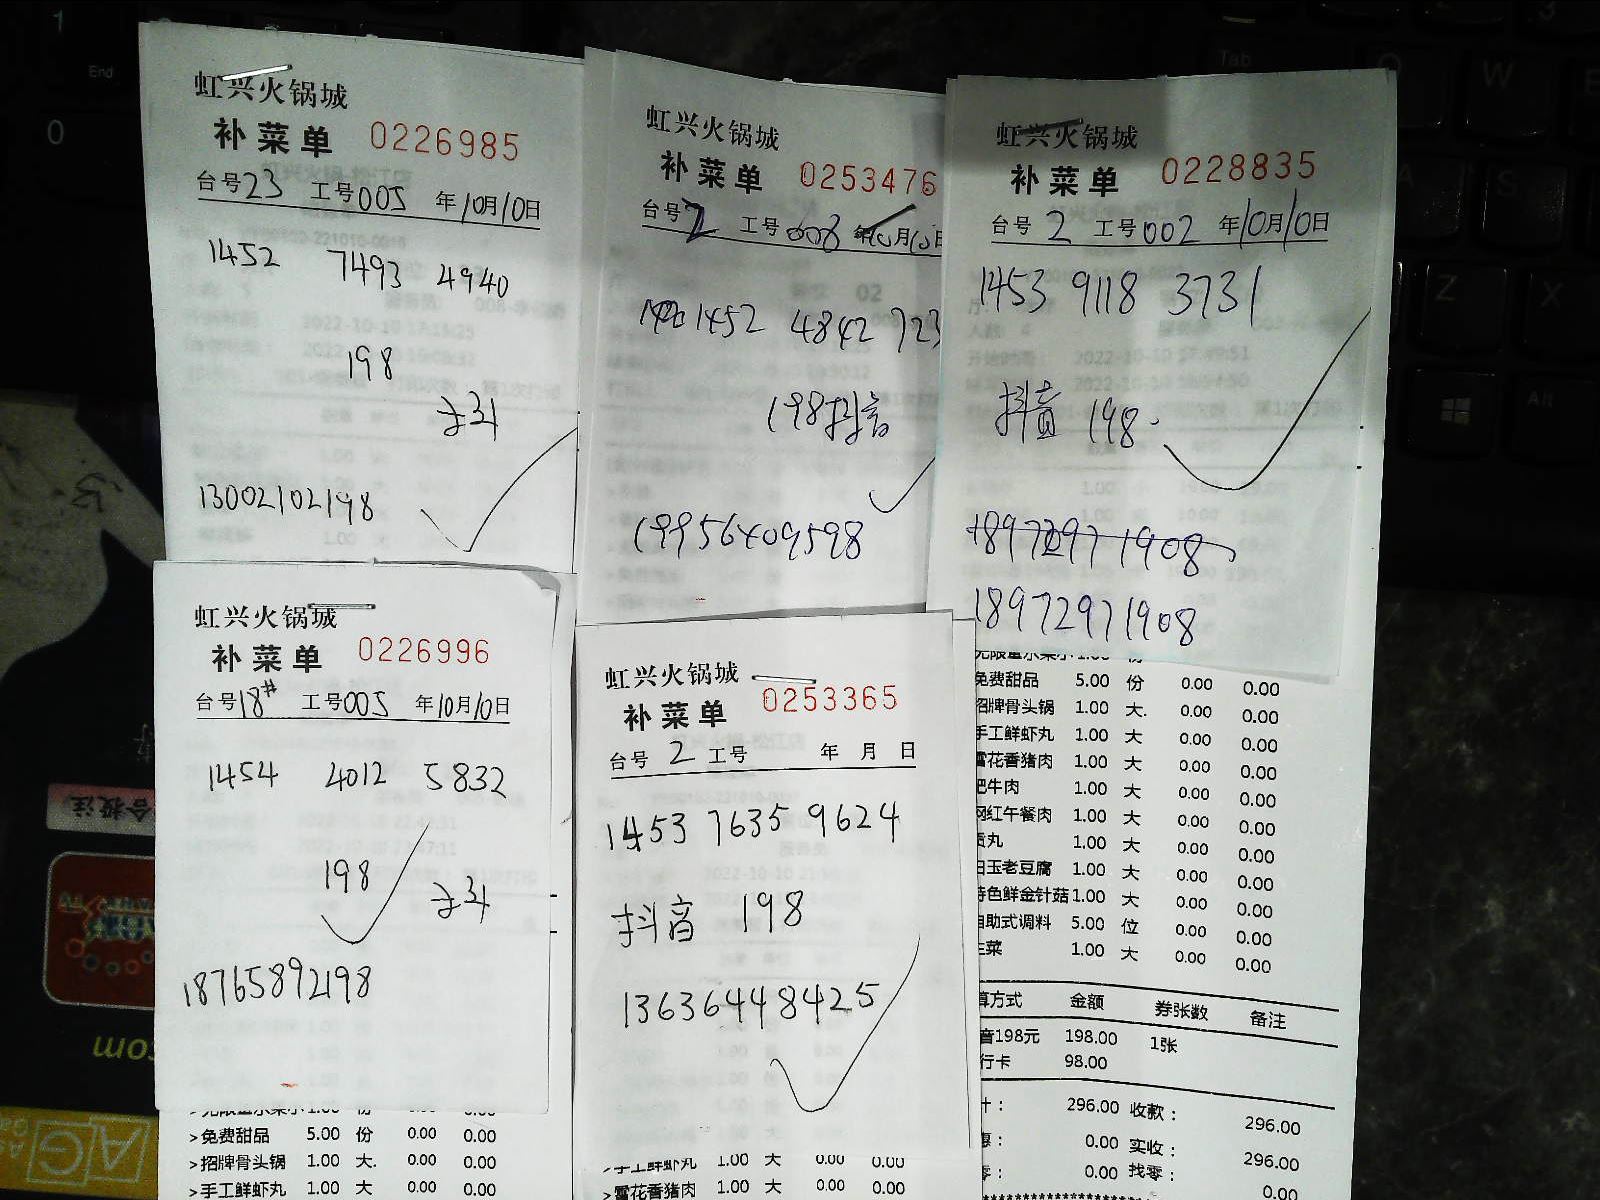 虹兴火锅城
补菜单 0226985
台号23 工号005 年10月10日
1452 7493 4940
198
13002102198
虹兴火锅城
补菜单 0253476
台号2 工号008 年10月10日
1452 4842 723
198抖音
19956409598
虹兴火锅城
补菜单 0228835
台号2 工号002 年10月10日
1453 9118 3731
抖音 198
18972971908
18972971908
虹兴火锅城
补菜单 0226996
台号18# 工号005 年10月10日
1454 4012 5832
198
18765892198
>免费甜品 5.00 份 0.00 0.00
>招牌骨头锅 1.00 大. 0.00 0.00
>手工鲜虾丸 1.00 大 0.00 0.00
虹兴火锅城
补菜单 0253365
台号2 工号 年 月 日
1453 7635 9624
抖音 198
13636448425
手工鲜虾丸 1.00 大 0.00 0.00
>雪花香猪肉 1.00 大 0.00 0.00
免费甜品 5.00 份 0.00 0.00
招牌骨头锅 1.00 大. 0.00 0.00
手工鲜虾丸 1.00 大 0.00 0.00
雪花香猪肉 1.00 大 0.00 0.00
肥牛肉 1.00 大 0.00 0.00
网红午餐肉 1.00 大 0.00 0.00
贡丸 1.00 大 0.00 0.00
白玉老豆腐 1.00 大 0.00 0.00
特色鲜金针菇 1.00 大 0.00 0.00
自助式调料 5.00 位 0.00 0.00
生菜 1.00 大 0.00 0.00
算方式 金额 券张数 备注
音198元 198.00 1张
行卡 98.00
计： 296.00 收款： 296.00
惠： 0.00 实收： 296.00
零： 0.00 找零： 0.00